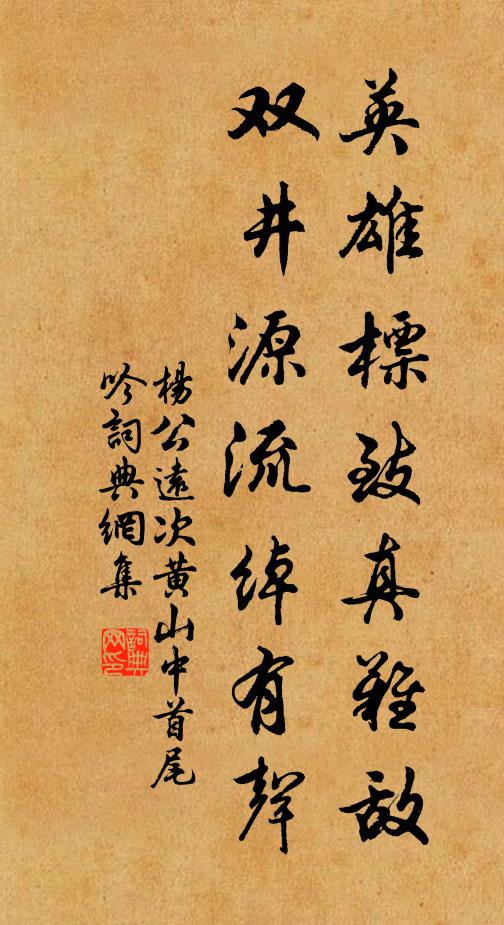 英雄標致真難敌
双井源流绰有聲
楊公遠次黄山中首尾
吟詞典網集
詞典网印